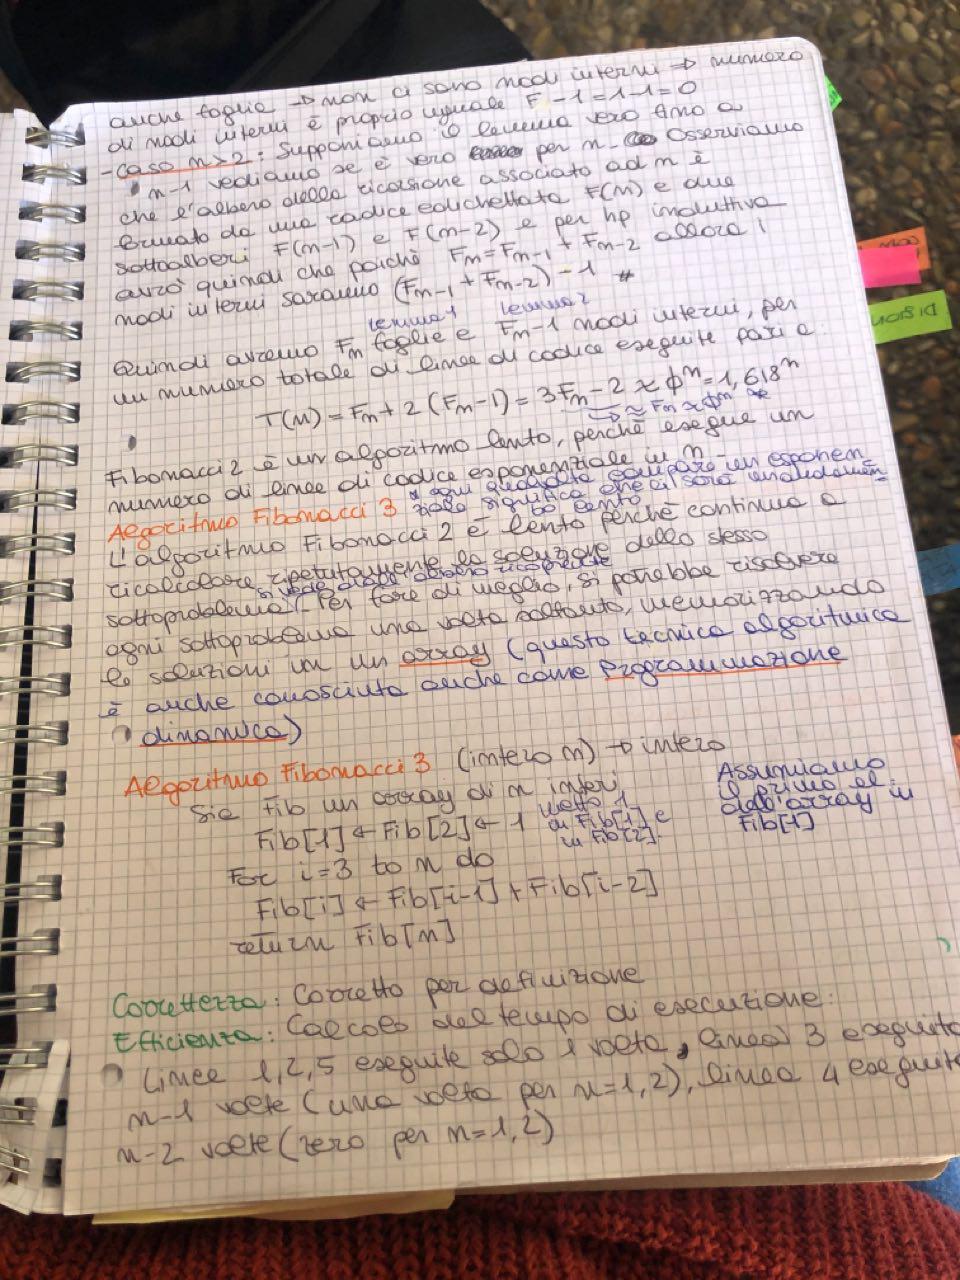 anche foglie → non ci sono nodi interni → numero
di nodi interni è proprio uguale F - 1 = 1 - 1 = 0
- caso n>2: Supponiamo il lemma vero fino a
n-1 vediamo se è vero per n. Osserviamo
che l'albero della ricorsione associato ad n è
formato da una radice etichettata F(n) e due
sottoalberi F(n-1) e F(n-2) e per hp induttiva
avrò quindi che poichè Fn = Fn-1 + Fn-2 allora i
nodi interni saranno (Fn-1 + Fn-2) - 1 #
lemma 1 lemma 2
Quindi avremo Fn foglie e Fn-1 nodi interni, per
un numero totale di linee di codice eseguite pari a:
T(n) = Fn + 2 (Fn-1) = 3Fn - 2 ≈ ϕⁿ = 1,618ⁿ
→ ≈ Fn ≈ ϕⁿ *
Fibonacci 2 è un algoritmo lento, perchè esegue un
numero di linee di codice esponenziale in n.
* ogni qualvolta compare un esponen-
ziale significa che ci sarà un andamen-
to lento
Algoritmo Fibonacci 3
L'algoritmo Fibonacci 2 è lento perchè continua a
ricalcolare ripetutamente la soluzione dello stesso
si vede dall'albero ricorsione
sottoproblema. Per fare di meglio, si potrebbe risolvere
ogni sottoproblema una volta soltanto, memorizzando
le soluzioni in un array (questa tecnica algoritmica
è anche conosciuta anche come Programmazione
dinamica)
Algoritmo Fibonacci 3 (intero n) → intero
Sia Fib un array di n interi
Fib[1] ← Fib[2] ← 1
metto 1
in Fib[1] e
in Fib[2].
Assumiamo
il primo el.
dell'array in
Fib[1]
For i=3 to n do
Fib[i] ← Fib[i-1] + Fib[i-2]
return Fib[n]
Correttezza: Corretto per definizione
Efficienza: Calcolo del tempo di esecuzione:
Linee 1, 2, 5 eseguite solo 1 volta, linea 3 eseguita
n-1 volte (una volta per n=1,2), linea 4 eseguita
n-2 volte (zero per n=1,2)